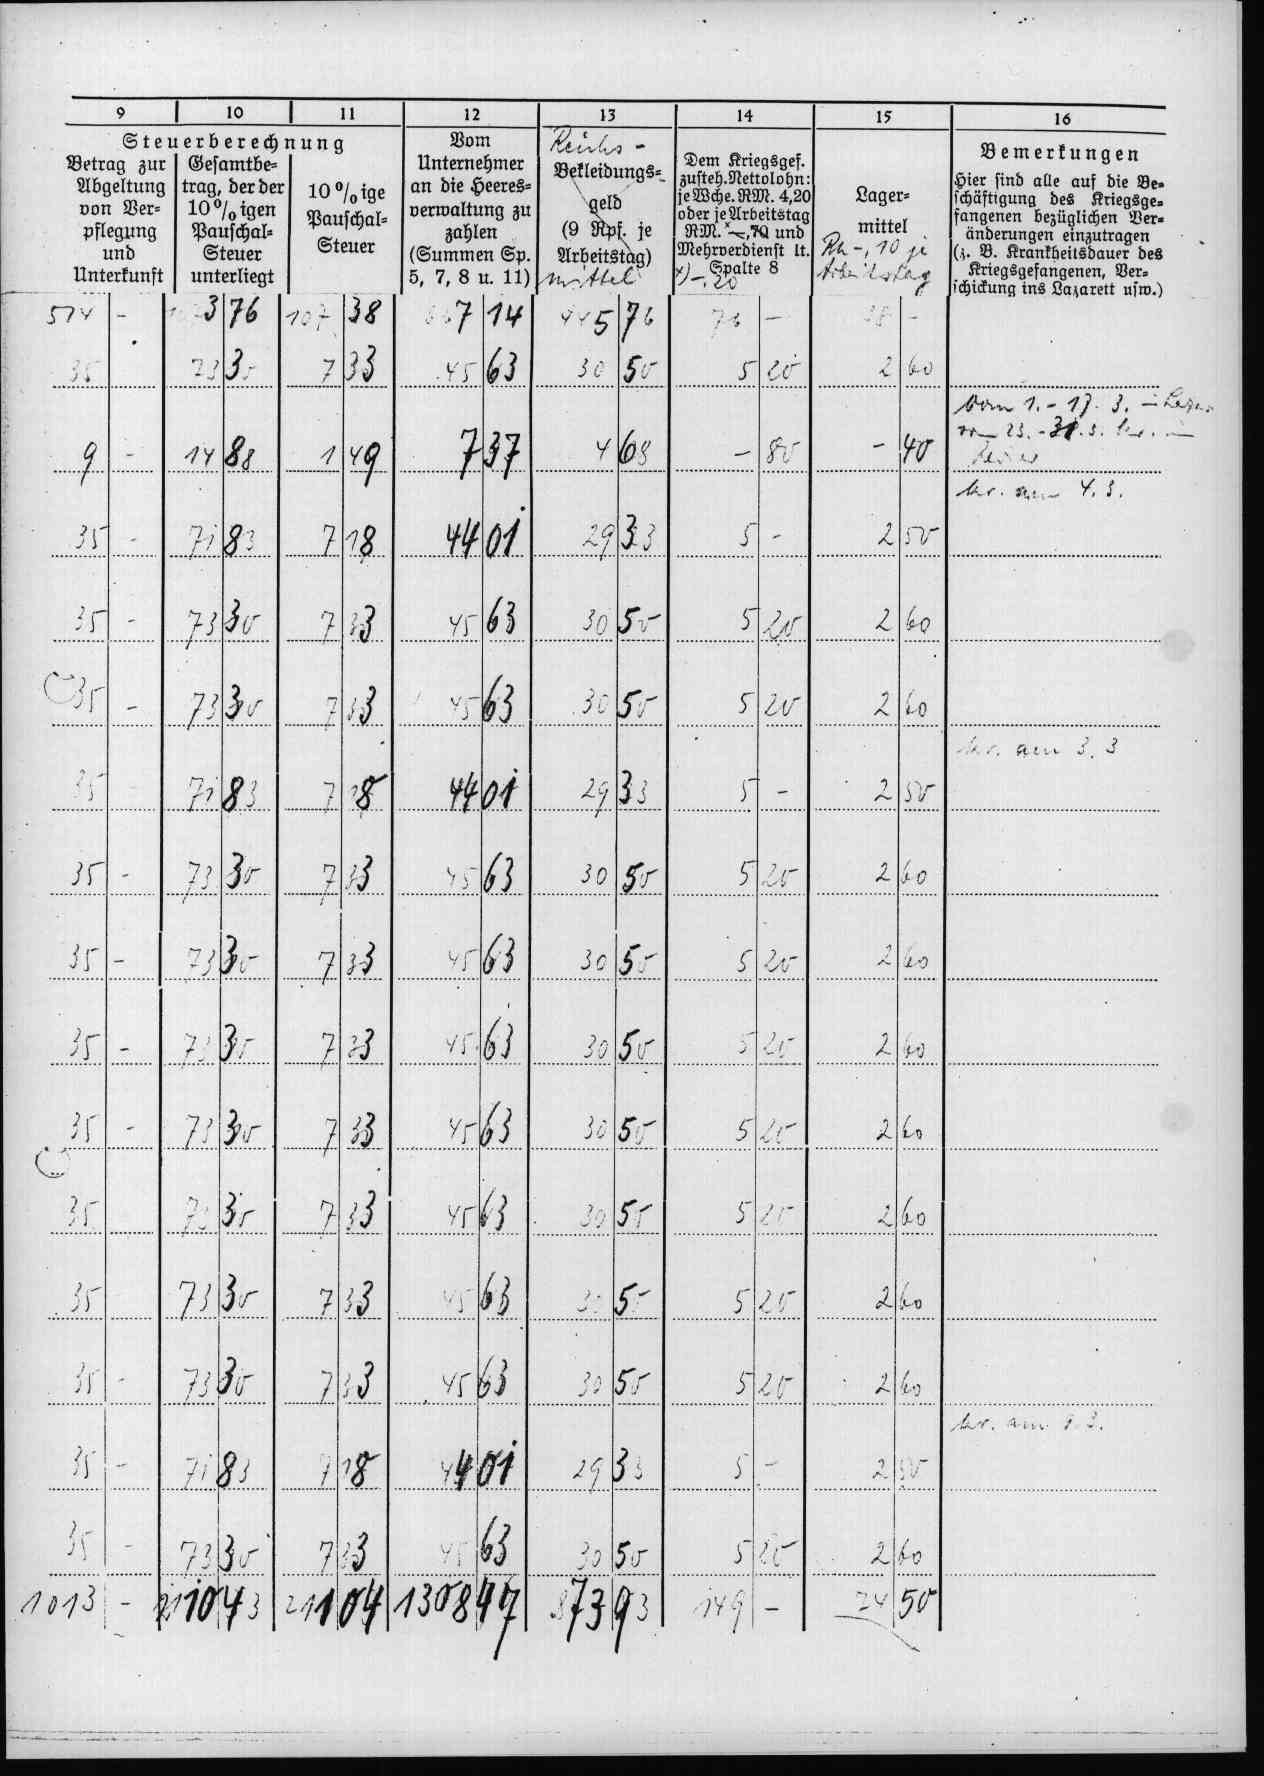 9 10 11 12 13 14 15 16
Steuerberechnung
Betrag zur
Abgeltung
von Ver-
pflegung
und
Unterkunft
Gesamtbe-
trag, der der
10%igen
Pauschal-
Steuer
unterliegt
10%ige
Pauschal-
Steuer
Vom
Unternehmer
an die Heeres-
verwaltung zu
zahlen
(Summen Sp.
5, 7, 8 u. 11)
Reichs-
Bekleidungs-
geld
(9 Rpf. je
Arbeitstag)
mittel
Dem Kriegsgef.
zusteh. Nettolohn:
je Wche. RM. 4,20
oder je Arbeitstag
RM. x —,70 und
Mehrverdienst lt.
Spalte 8
x) -.20
Lager-
mittel
RM -,10 je
Arbeitstag
Bemerkungen
Hier sind alle auf die Be-
schäftigung des Kriegsge-
fangenen bezüglichen Ver-
änderungen einzutragen
(z. B. Krankheitsdauer des
Kriegsgefangenen, Ver-
schickung ins Lazarett usw.)
574 - 3 76 107 38 7 14 445 76 76 - 38 -
35 73 30 7 33 45 63 30 50 5 20 2 60
vom 1. - 17. 3. im
vom 23. - 31. 3. kr. im
Revier
9 - 14 88 1 49 7 37 4 68 - 80 - 40
kr. am 4. 3.
35 - 71 83 7 18 44 01 29 33 5 - 2 50
35 - 73 30 7 33 45 63 30 50 5 20 2 60
35 - 73 30 7 33 45 63 30 50 5 20 2 60
kr. am 3. 3
35 71 83 7 18 44 01 29 33 5 - 2 50
35 - 73 30 7 33 45 63 30 50 5 20 2 60
35 - 73 30 7 33 45 63 30 50 5 20 2 60
35 - 73 30 7 33 45 63 30 50 5 20 2 60
35 - 73 30 7 33 45 63 30 50 5 20 2 60
35 73 30 7 33 45 63 30 50 5 20 2 60
35 73 30 7 33 45 63 30 50 5 20 2 60
35 - 73 30 7 33 45 63 30 50 5 20 2 60
kr. am 3.
35 - 71 83 7 18 44 01 29 33 5 - 2 50
35 - 73 30 7 33 45 63 30 50 5 20 2 60
1013 - 2110 43 211 04 1308 49 873 93 149 - 74 50